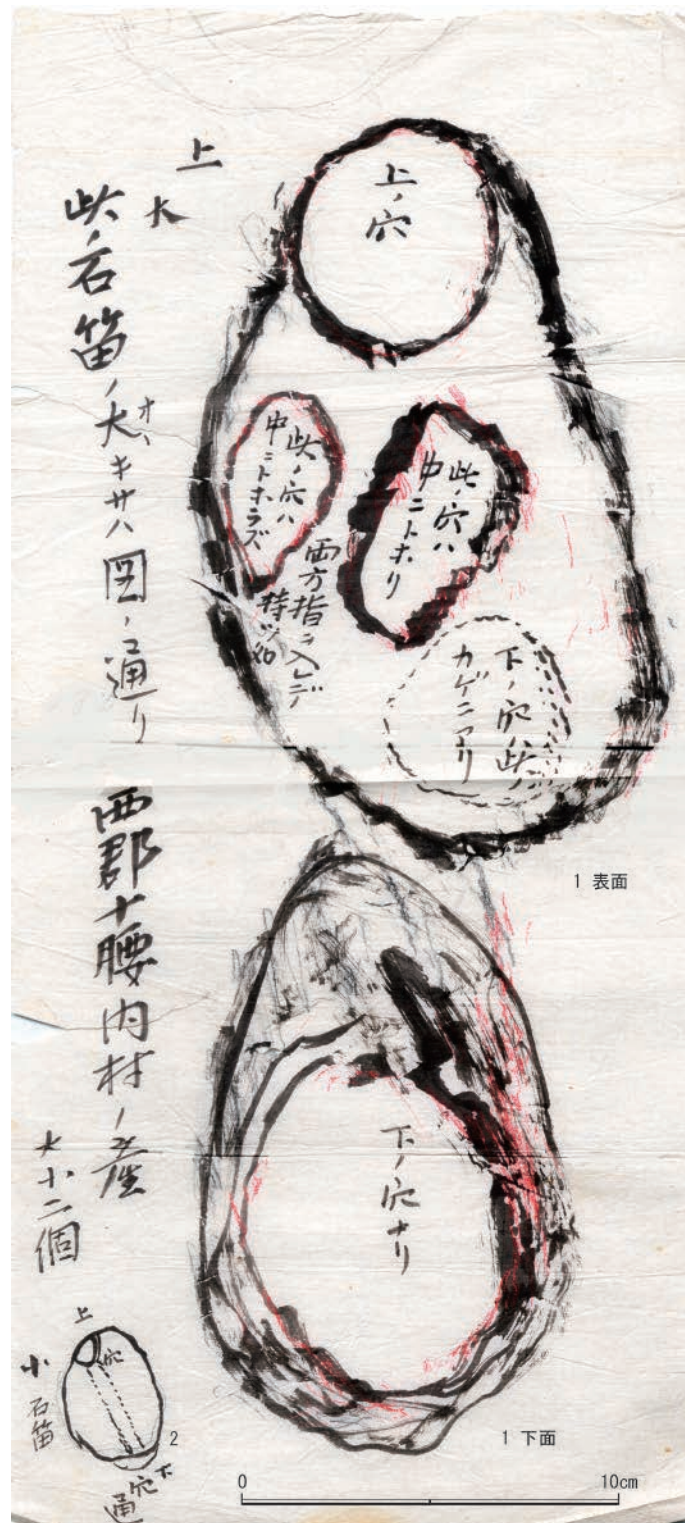 上
大
此ノ石笛ノ大キサハ図ノ通リ
オヽ
西郡十腰内村ノ産
大小二個
上ノ穴
此ノ穴ハ
中ニトホリ
此ノ穴ハ
中ニトホラズ
両方指ヲ入レデ
持ツ如
下ノ穴ハ此ノ
カゲニアリ
1 表面
下ノ穴ナリ
1 下面
上
穴
小石笛
2
下
穴
通
0 10cm